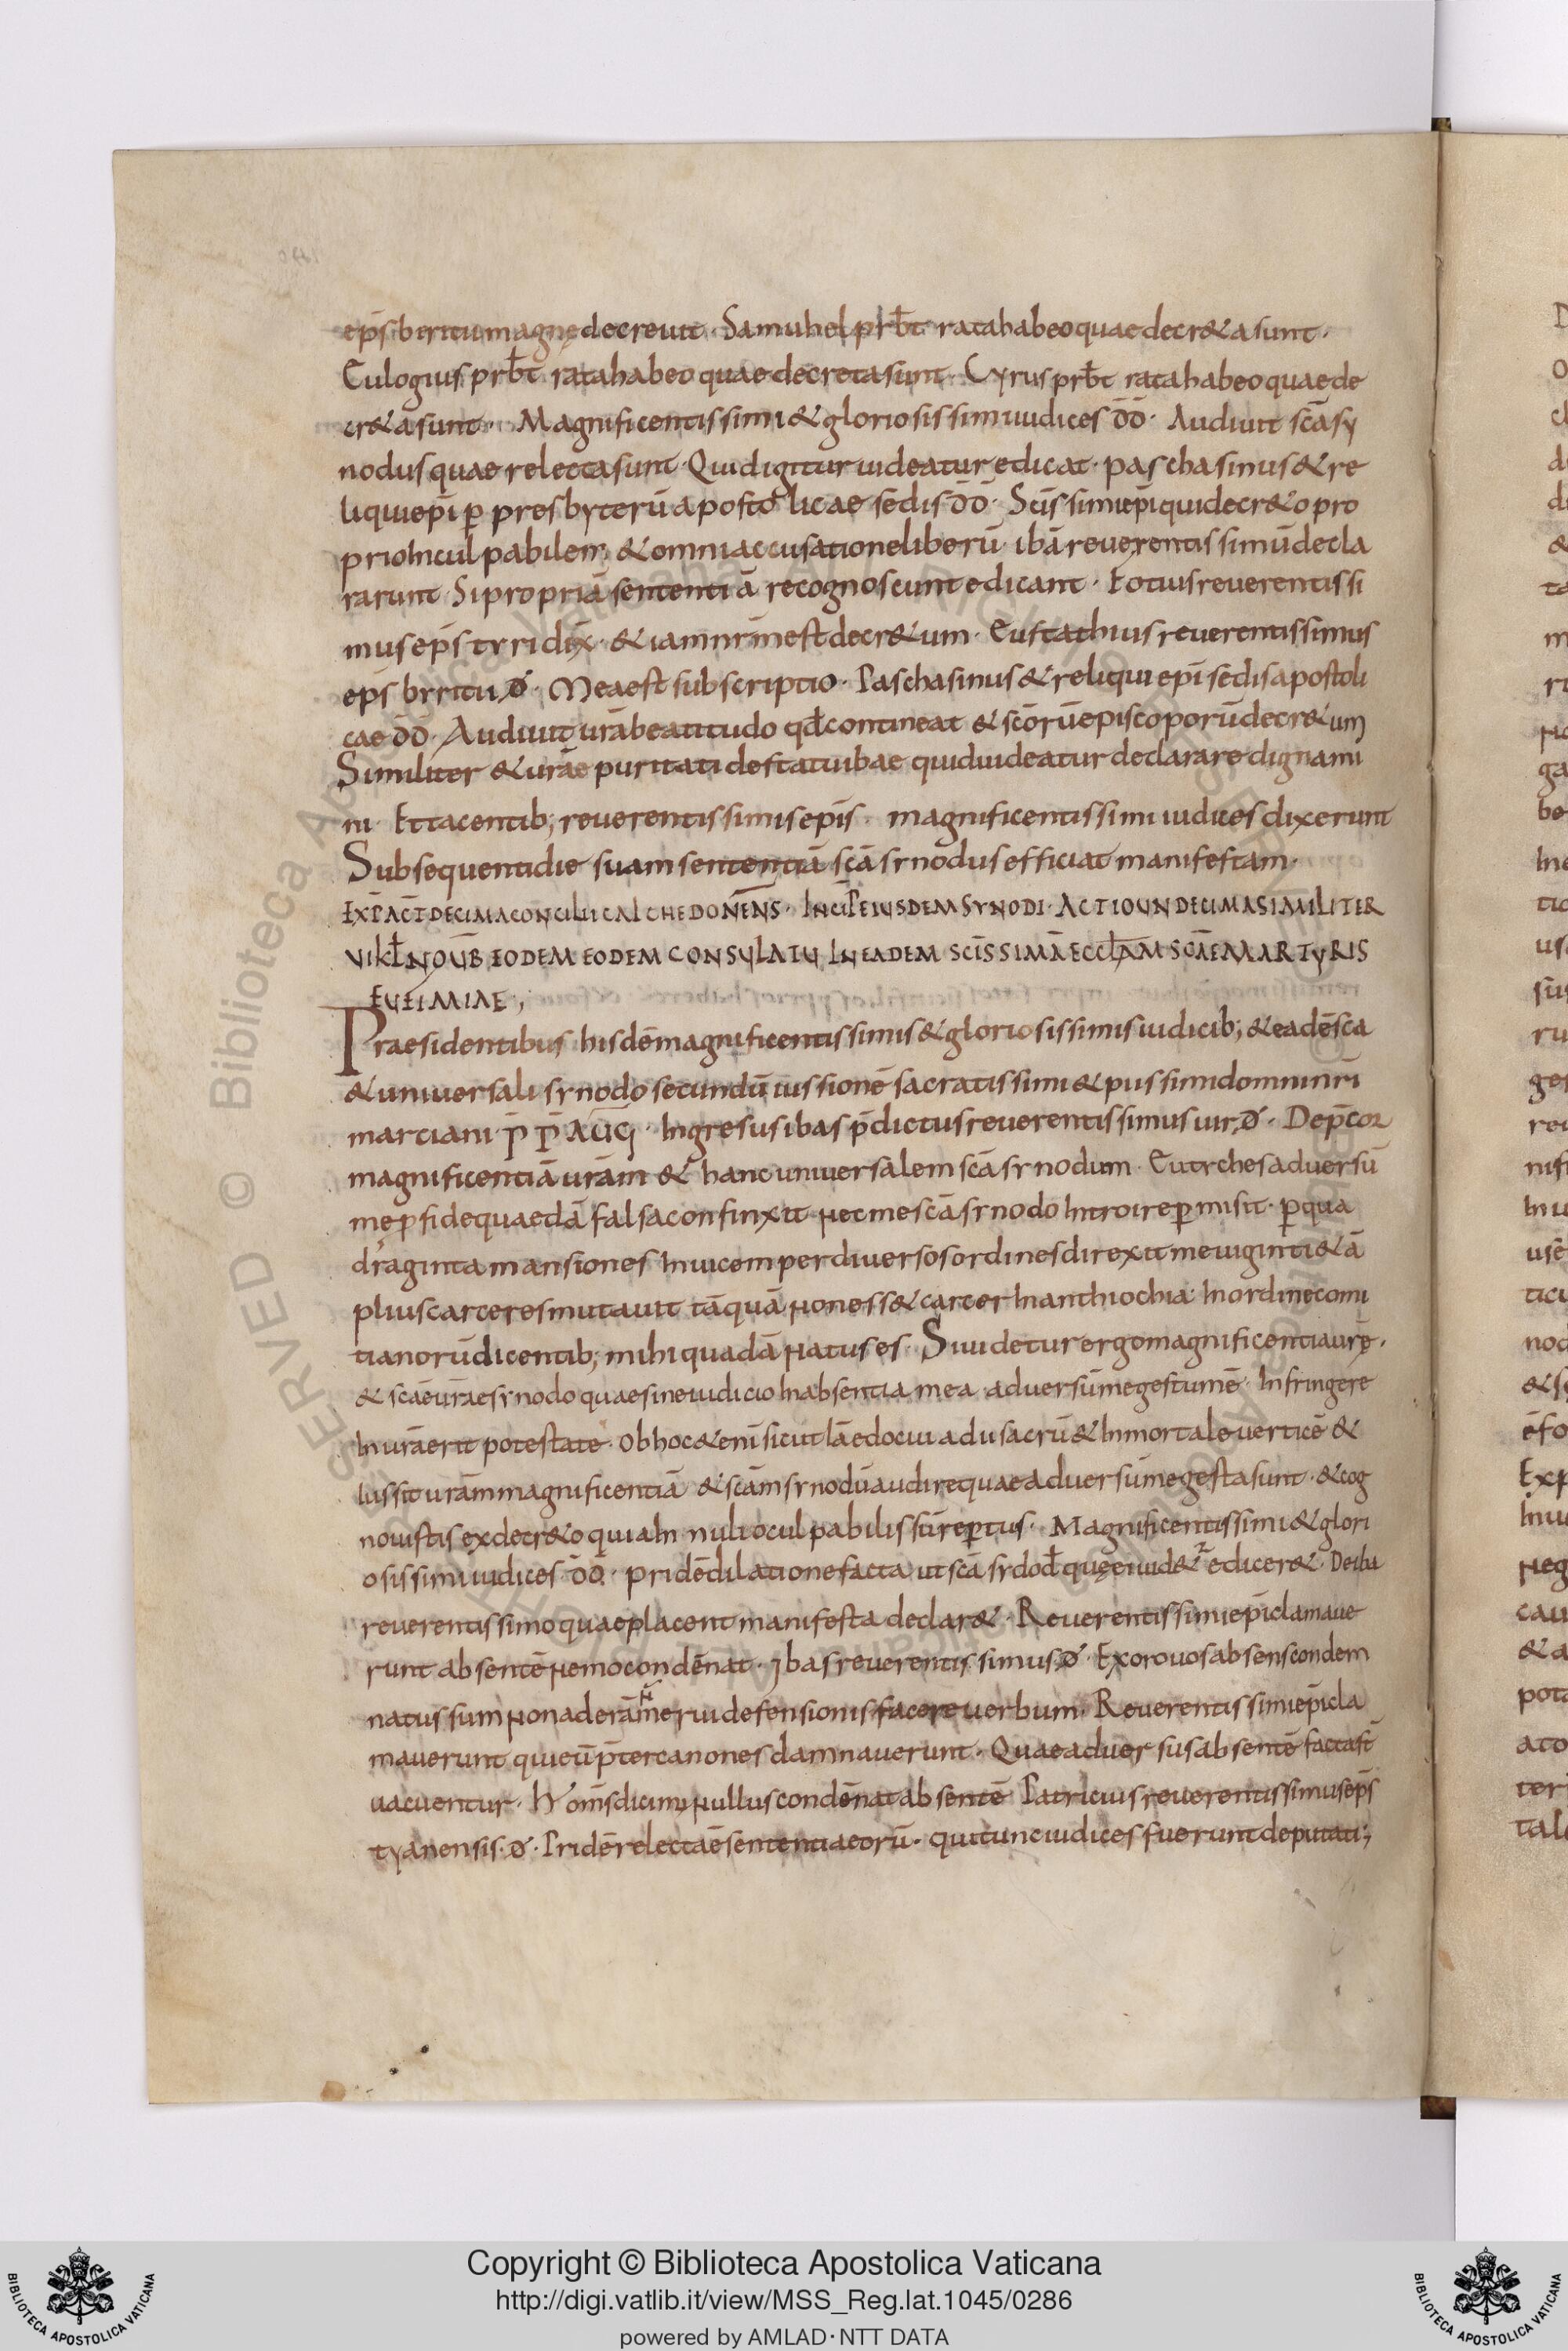 ep̄s biritu magnę decreuit · Samuhel prb̄t rata habeo quae decr&a sunt ·
Eulogius prb̄t rata habeo quae decreta sunt · Cyrus prb̄t rata habeo quae de
cr&a sunt · Magnificentissimi & gloriosissimi iudices d̄d̄ · Audiuit sc̄a sy
nodus quae relecta sunt · Quid igitur uideatur edicat · paschasinus & re
liqui ep̄i p̱ presbyterū apostolicae sedis d̄d̄ · Sc̄issimi ep̄i qui decr&o pro
prio Inculpabilem & omni accusatione liberū ibā reuerentissimū decla
rarunt Si propriā sententiā recognoscunt edicant · Fotius reuerentissi
mus ep̄s tyri dix̄ · & iam nr̄m est decr&um · Eustathius reuerentissimus
ep̄s byritu đ · Mea est subscriptio · Paschasinus & reliqui ep̄i sedis apostoli
cae d̄d̄ · Audiuit ur̄a beatitudo qd̄ contineat & sc̄orū episcoporū decr&um
Similiter & ur̄ae puritati de statu ibae quid uideatur declarare dignami
ni · Et tacentib; reuerentissimis ep̄is · magnificentissimi iudices dixerunt
Subsequenti die suam sententiā sc̄a synodus efficiat manifestam ·
EXP̄ ACT̄ DECIMA CONCILII CALCHEDONEN̄S · INCIP̄ EIUSDEM SYNODI · ACTIO UNDECIMA SIMILITER
VI KL̄ NOUB̄ EODEM EODEM CONSULATU IN EADEM SC̄ISSIMĀ ECCL̄AM SC̄AE MARTYRIS
EUFIMIAE ·,
Praesidentibus hisdē magnificentissimis & gloriosissimis iudicib; & eadē sca
& uniuersali synodo secundū iussionē sacratissimi & piissimi domini nr̄i
marciani · P̄ P̄ AUḠ · Ingresus ibas p̄dictus reuerentissimus uir đ · Dep̄cor
magnificentiā ur̄am & hanc uniuersalem sc̄a synodum · Eutyches aduersū
me p̱ fide quaedā falsa confinxit Nec me sc̄a synodo Introire p̱misit · p̱ qua
draginta mansiones In uicem per diuersos ordines direxit me uiginti & ā
plius carceres mutauit tāquā Non ess& carcer In anthiochia In ordine comi
tianorū dicentib; mihi quadā Natus es · Si uidetur ergo magnificentia ur̄ę ·
& sc̄ae ur̄ae synodo quae sine iudicio In absentia mea aduersū me gestumē · Infringere
In ur̄a erit potestate · Ob hoc & enī sicut lā edocui adii sacrū & Inmortale uerticē &
Iussit ur̄am magnificentiā & sc̄am synodū audire quae aduersū me gesta sunt · & cog
nouistis ex decr&o quia In nulio culpabilis sū rep̱tus · Magnificentissimi & glori
osissimi iudices d̄d̄ · pridē dilatione facta ut sc̄a sydod̄ quę ei uid&r edicer& · De iba
reuerentissimo quae placent manifesta declar& · Reuerentissimi ep̄i clamaue
runt absentē Nemo condēnat · Ibas reuerentissimus đ · Exoro uos absens condem
natus sum Non aderām Nerui defensionis facere uerbum · Reuerentissimi ep̄i cla
mauerunt qui eū p̄ter canones damnauerunt · Quae aduersus absentē facta st̄
uacuentur · Hꝰ om̄s dicimꝰ Nullus condēnat absentē Patricius reuerentissimus ep̄s
tyanensis · đ · Pridē relectaē sententia eorū · qui tunc iudices fuerunt deputati;
Copyright © Biblioteca Apostolica Vaticana
http://digi.vatlib.it/view/MSS_Reg.lat.1045/0286
powered by AMLAD·NTT DATA
BIBLIOTECA APOSTOLICA VATICANA
BIBLIOTECA APOSTOLICA VATICANA